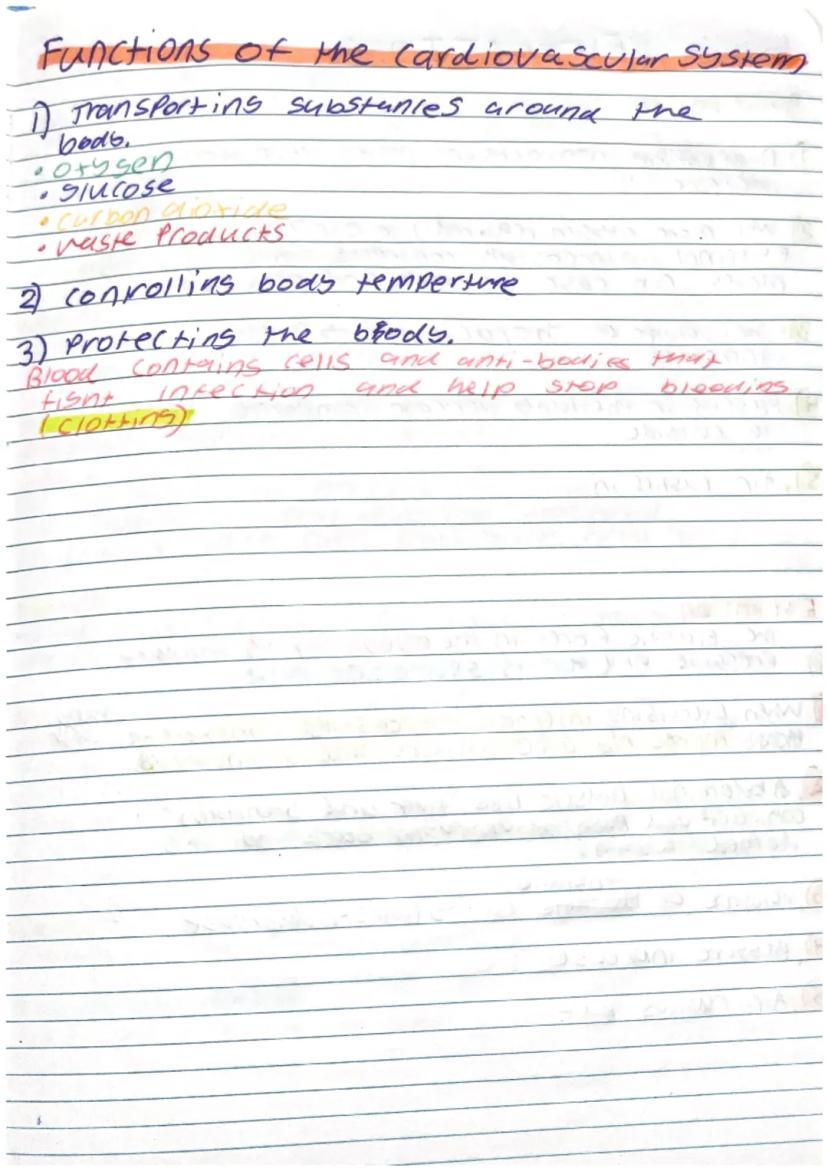 Functions of the Cardiovascular System
1) Transporting substanles around the
body.
• oxygen
• glucose
• carbon dioxide
• waste Products
2) Controlling body temperture
3) Protecting the body.
Blood contains cells and anti-bodies that
fight infection and help stop bleeding
(clotting)